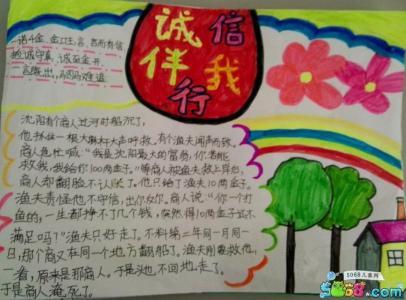 诚信
伴我
行
一诺千金,金口玉言,言而有信
抱诚守真,诚至金开
一言既出,驷马难追
沈阳有个商人过河时船沉了,
他抓住一根大麻杆大声呼救,有个渔夫闻声而致。
商人急忙喊“我是沈阳最大的富翁,你若能
救我,我给你100两金子”等商人被渔夫救上岸后,
商人却翻脸不认账了。他只给了渔夫10两金子。
渔夫责怪他不守信,出尔反尔。商人说“你一个打
鱼的,一生都挣不了几个钱,突然得10两金子还不
满足吗?”渔夫只好走了。不料第二年同一月同一
日,那个商又在同一个地方翻船了。渔夫用要救他,
一看,原来是那商人。于是头也不回地走了。
于是商人淹死了。
5068儿童网
5068.com